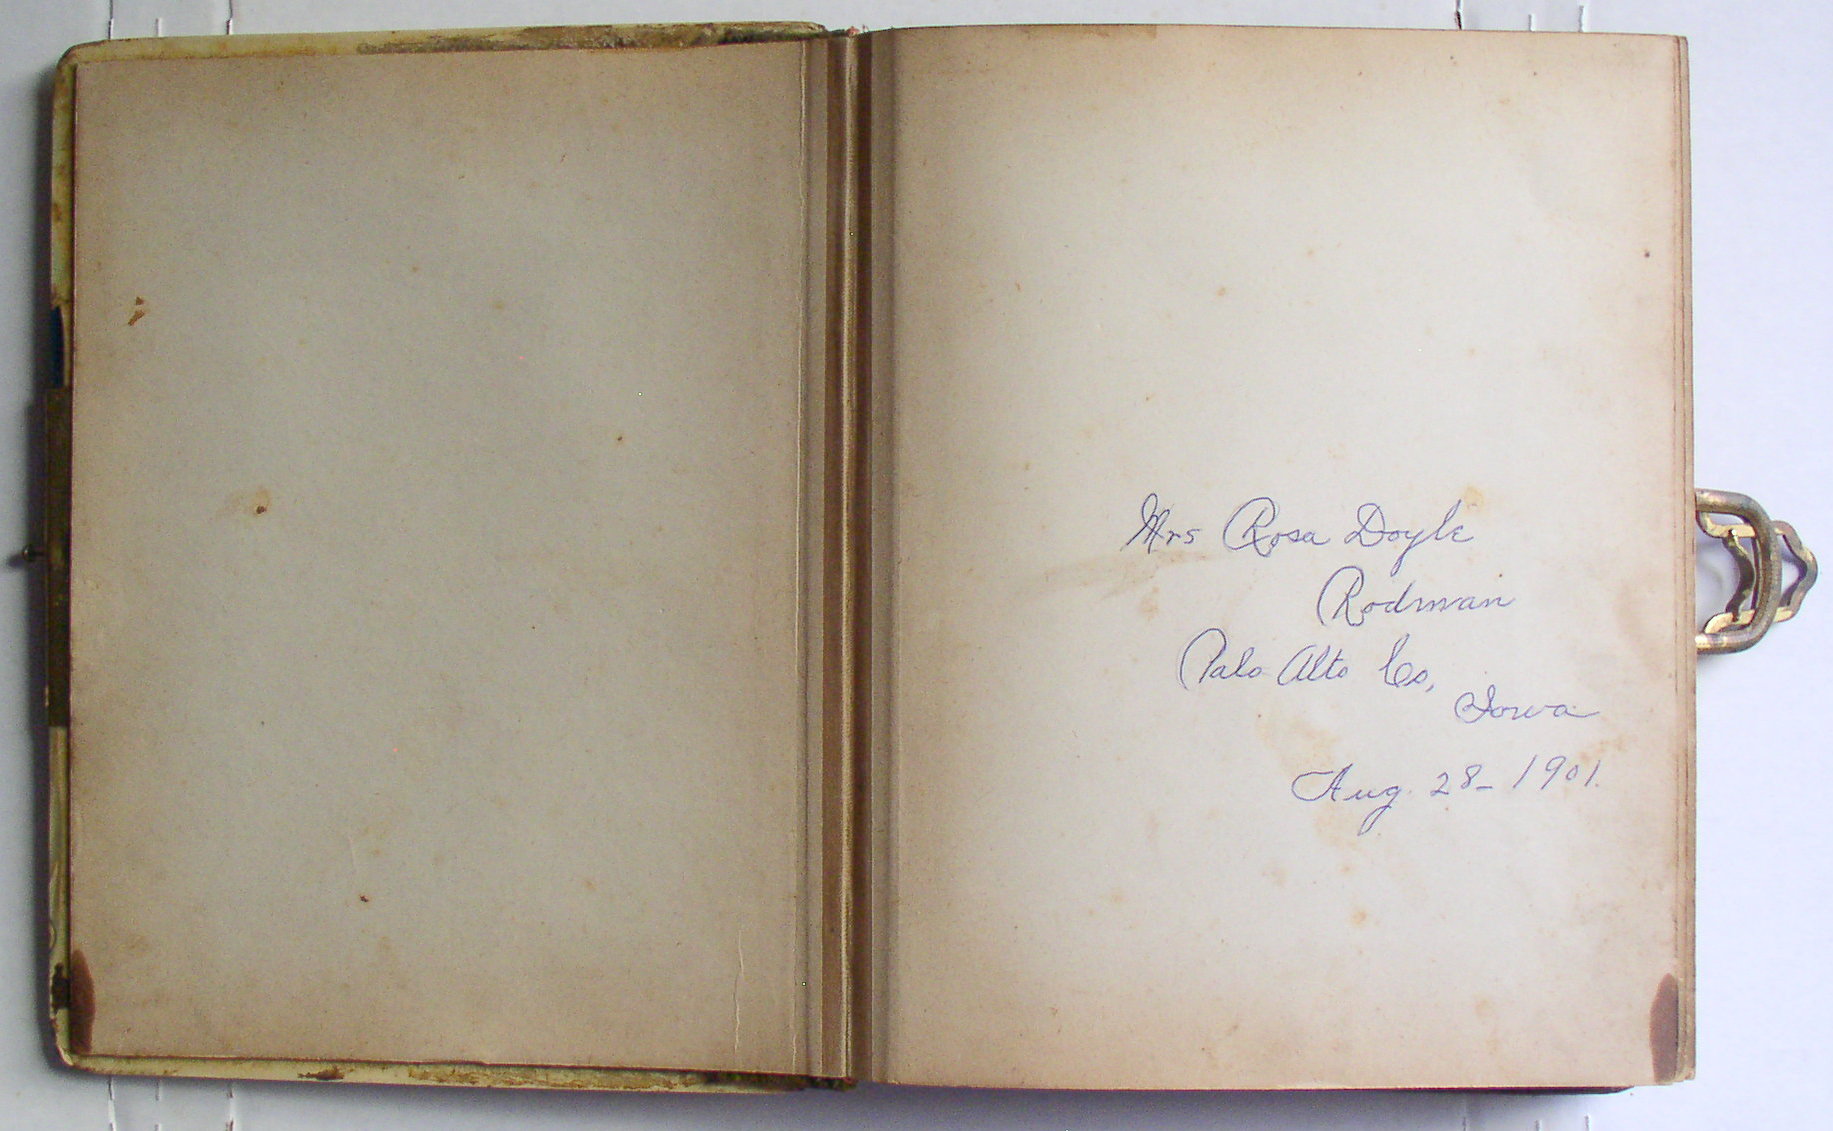 Mrs Rosa Doyle
Rodman
Palo Alto Co,
Iowa
Aug. 28- 1901.